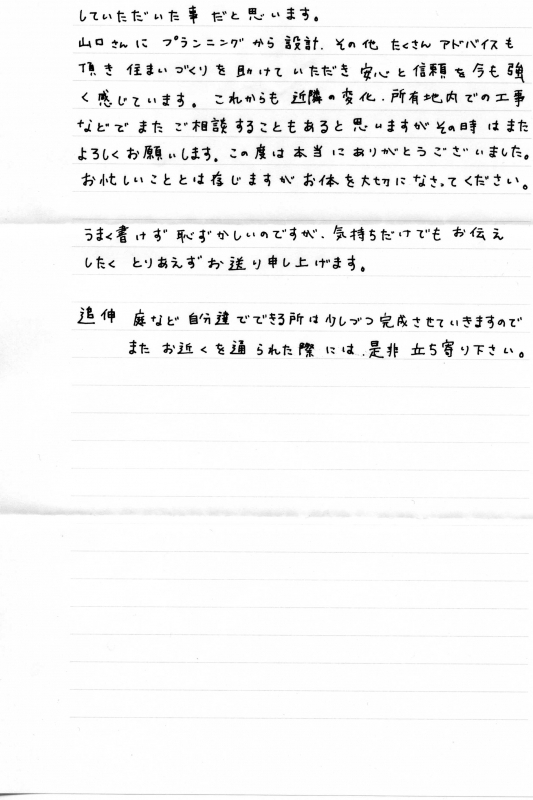 していただいた事だと思います。
山口さんに プランニングから設計、その他 たくさん アドバイスも
頂き 住まいづくりを助けていただき 安心と信頼を今も強
く感じています。これからも 近隣の変化、所有地内での工事
などで また ご相談することもあると思いますがその時はまた
よろしくお願いします。この度は本当にありがとうございました。
お忙しいこととは存じますがお体を大切になさってください。
うまく書けず恥ずかしいのですが、気持ちだけでも お伝え
したく とりあえずお送り申し上げます。
追伸 庭など 自分達でできる所は少しづつ完成させていきますので
また お近くを通られた際には、是非 立ち寄り下さい。